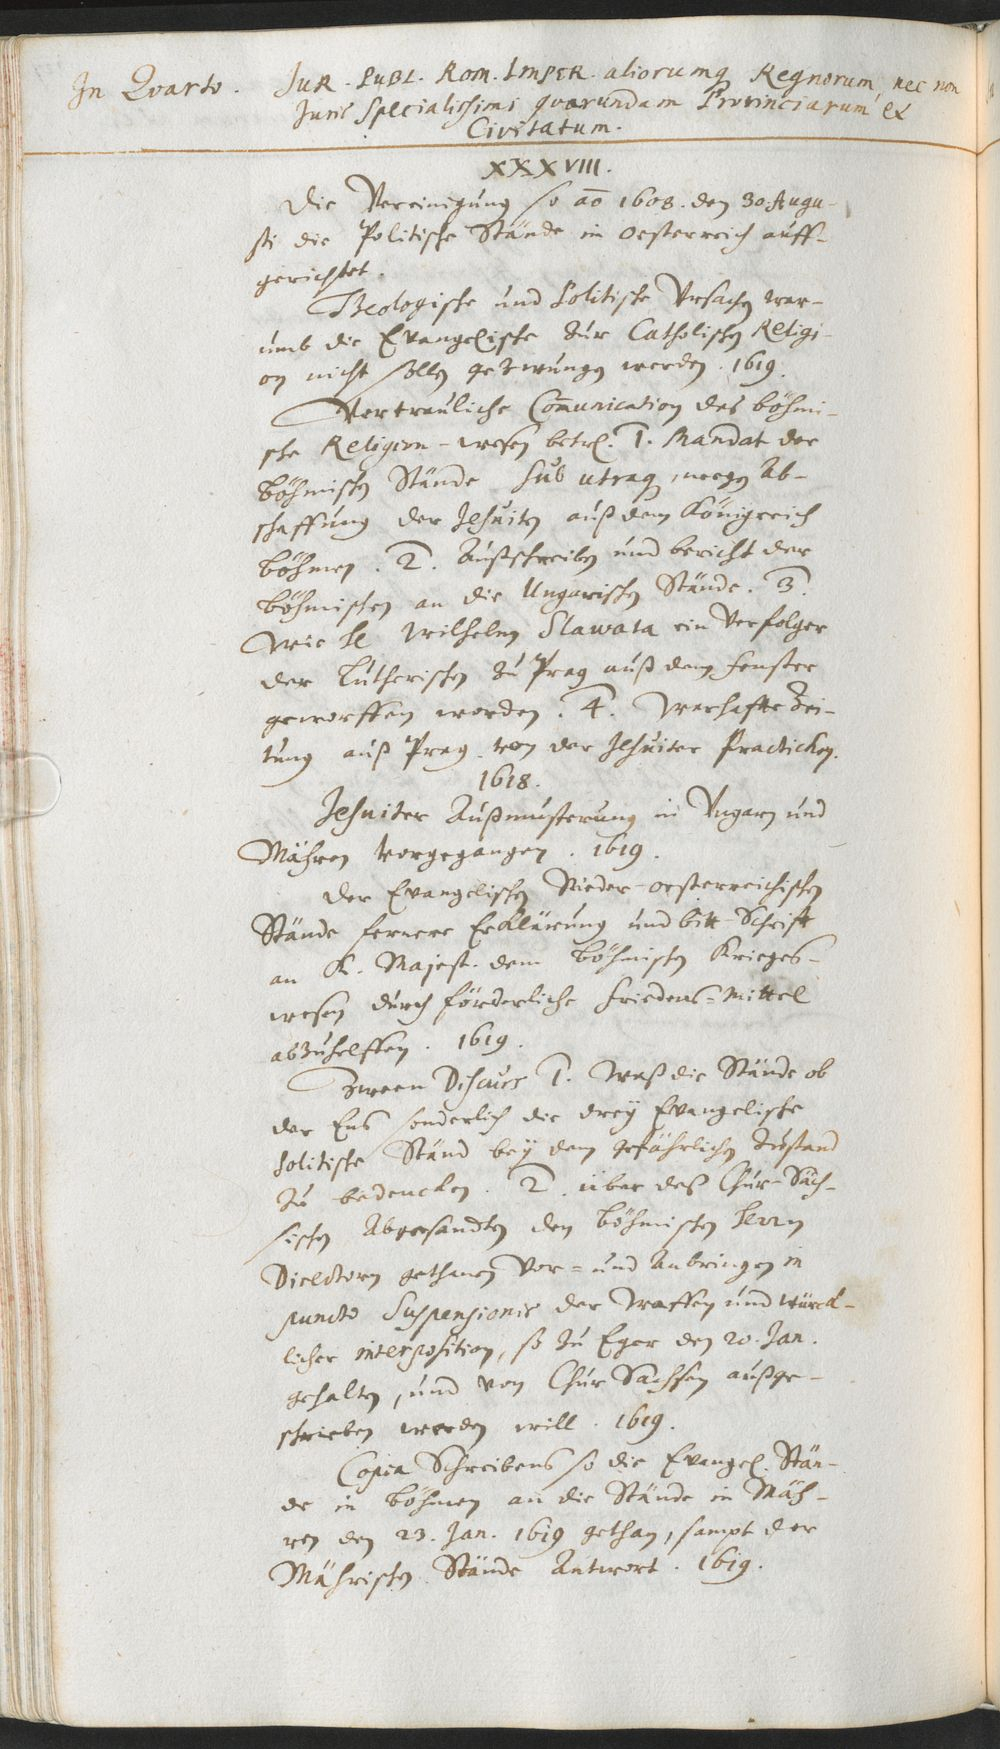 In Qvarto. JUR. PUBL. Rom. IMPER. aliorumq Regnorum, nec non
Juris Specialissimi qvarundam Provinciarum et
Civitatum.
XXXVIII.
Die Vereinigung so ao 1608. den 30. Augu-
sti die Politische Stände in Oesterreich auff-
gerichtet.
Theologische und Politische Ursachen war-
umb die Evangelische zur Catholischen Religi-
on nicht sollen gezwungen werden. 1619.
Vertrauliche Comunication des böhmi-
sche Religion-wesen betrl. 1. Mandat der
böhmischen Stände sub utraq, wegen Ab-
schaffung der Jesuiten auß dem Königreich
böhmen. 2. Außschreiben und bericht der
böhmischen an die Ungarischen Stände. 3.
Wie H Wilhelm Slawata ein Verfolger
der Lutherischen zu Prag auß dem Fenster
geworffen worden. 4. Warhaffte Zei-
tung auß Prag von der Jesuiter Practicken.
1618.
Jesuiter Außmusterung in Ungarn und
Mähren vorgegangen. 1619.
Der Evangelischen Nieder-oesterreichischen
Stände fernere Erklärung und bitt-Schrifft
an K. Majest. dem böhmischen Krieges-
wesen durch förderliche Friedens-Mittel
abzuhelffen. 1619.
Zween Discurs 1. Waß die Stände ob
der Ens sonderlich die drey Evangelische
politische Ständ bey dem gefährlichen Zustand
zu bedencken. 2. über deß Chur-Säch-
sischen Abgesandten den böhmischen Herrn
Directorn gethanen Vor- und Anbringen in
puncto Suspensionis der Waffen und würck-
licher interposition, so zu Eger den 20. Jan.
gehalten, und von Chur Sachsen außge-
schrieben werden will. 1619.
Copia Schreibens so die Evangel. Stän-
de in böhmen an die Stände in Mäh-
ren den 23. Jan. 1619 gethan, sampt der
Mährischen Stände Antwort. 1619.